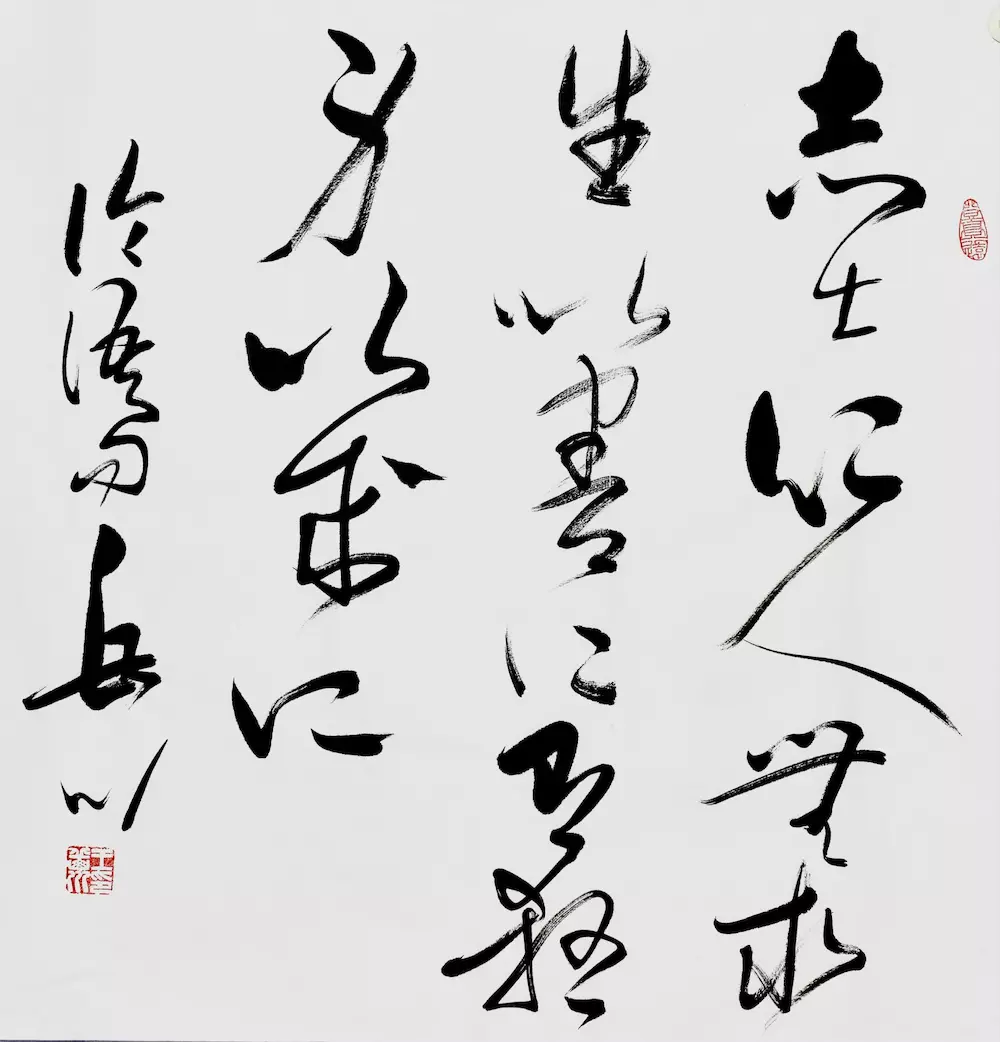 志士仁人無求
生以害仁有殺
身以成仁
論語句岳川